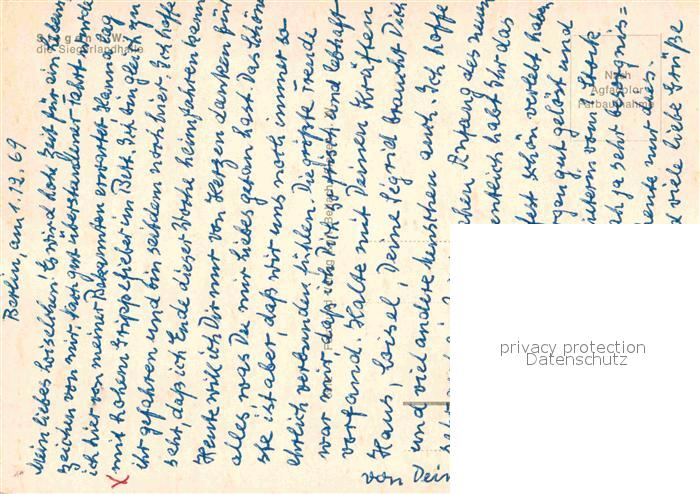 Siegen i. W.
die Siegerlandhalle
Nach
Agfacolor
Farbaufnahme
Berlin, am 1.12.69
Mein liebes Loiselchen! Es wird hohe Zeit für ein Lebens
zeichen von mir. Nach gut überstandener Fahrt wurde
ich hier von meiner Bekannten erwartet. Hanna lag
mit hohem Grippefieber im Bett. Ich bin gleich zu
ihr gefahren und bin seitdem noch hier. Ich hoffe
sehr, daß ich Ende dieser Woche heimfahren kann
Heute will ich Dir nur von Herzen danken für
alles was Du mir liebes getan hast. Das Schön
ste ist aber, daß wir uns noch immer so
ehrlich verbunden fühlen. Die größte Freude
war mir, daß ich Dich so frisch und lebhaft
vorfand. Halte mit Deinen Kräften
Haus, Loisel, Deine Sigrid braucht Dich
und viel andere Menschen auch. Ich hoffe
Anfang des neuen
habt Ihr das
fest schön verlebt, habe
gut gelöst und
vom Stark
ja sehr besorgnis=
mir alles.
viele liebe Grüße
von Dein
privacy protection
Datenschutz